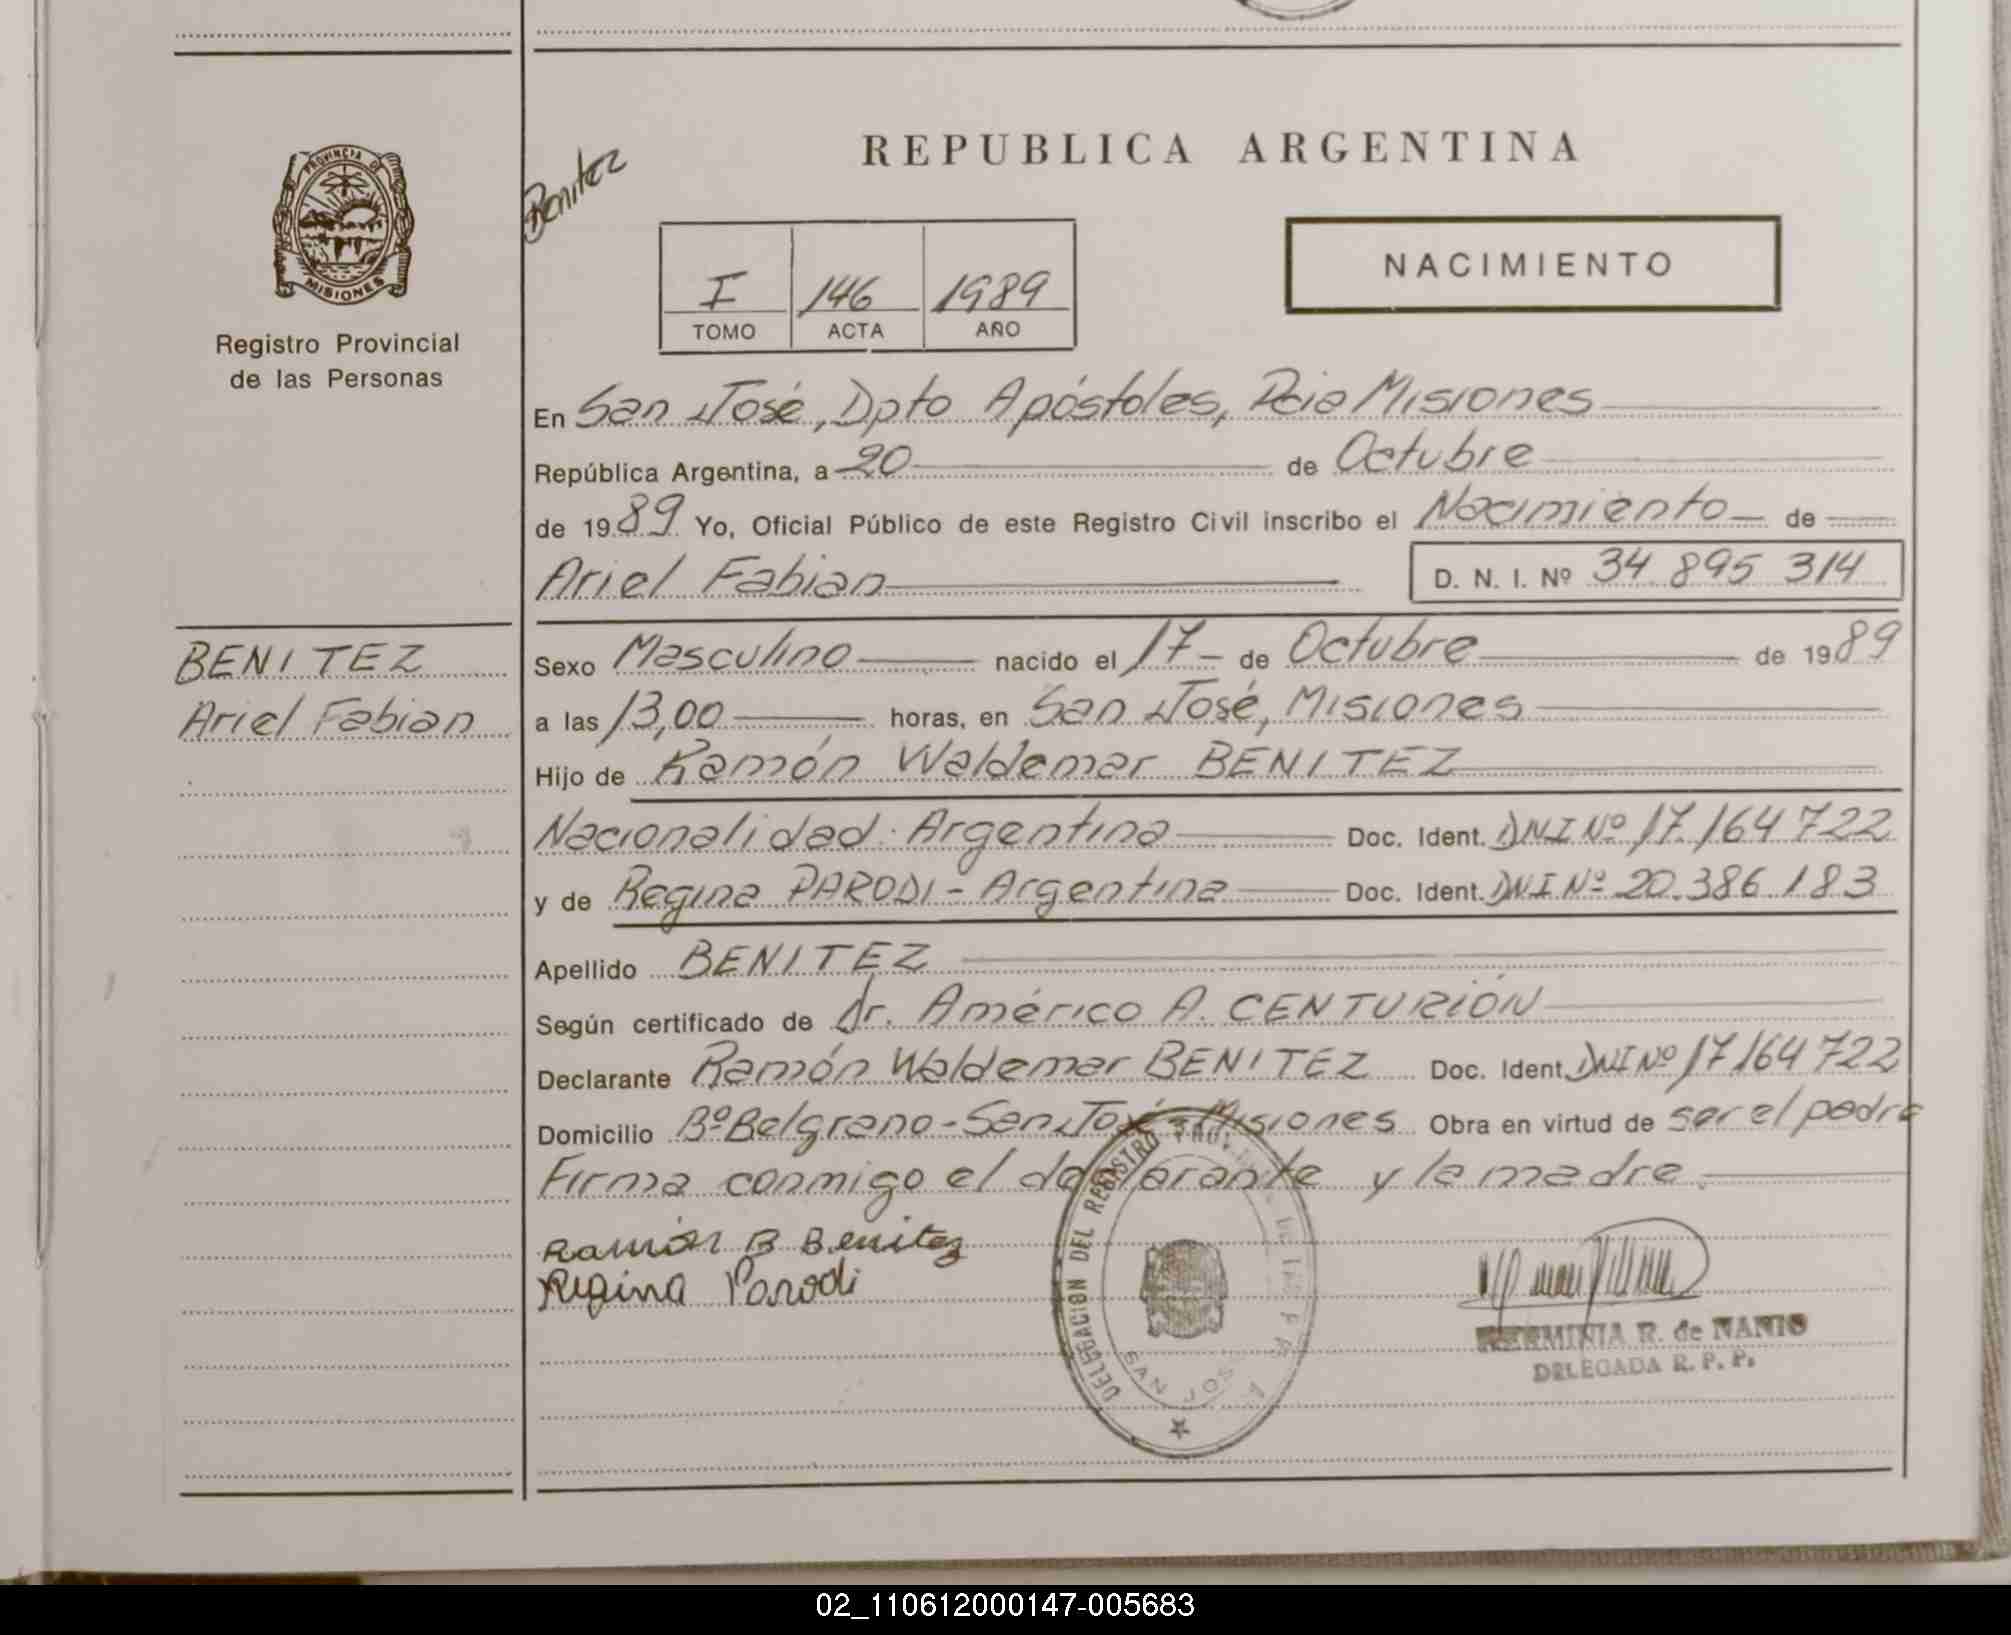 PROVINCIA DE
MISIONES
Registro Provincial
de las Personas
BENITEZ
Ariel Fabian
Benitez
REPUBLICA ARGENTINA
I 146 1989
TOMO ACTA AÑO
NACIMIENTO
En San José, Dpto Apóstoles, Pcia Misiones
República Argentina, a 20 de Octubre
de 1989 Yo, Oficial Público de este Registro Civil inscribo el Nacimiento de
Ariel Fabian D. N. I. Nº 34 895 314
Sexo Masculino nacido el 17 de Octubre de 1989
a las 13,00 horas, en San José, Misiones
Hijo de Ramón Waldemar BENITEZ
Nacionalidad: Argentina Doc. Ident. DNI Nº 17.164 722
y de Regina PARODI - Argentina Doc. Ident. DNI Nº 20.386.183
Apellido BENITEZ
Según certificado de Dr. Américo A. CENTURIÓN
Declarante Ramón Waldemar BENITEZ Doc. Ident. DNI Nº 17164 722
Domicilio Bº Belgrano - San José - Misiones Obra en virtud de ser el padre
Firma conmigo el declarante y la madre.
Ramón B Benitez
Regina Parodi
DELEGACION DEL REGISTRO
SAN JOSE
HERMINIA R. de NANIO
DELEGADA R. P. P.
02_110612000147-005683